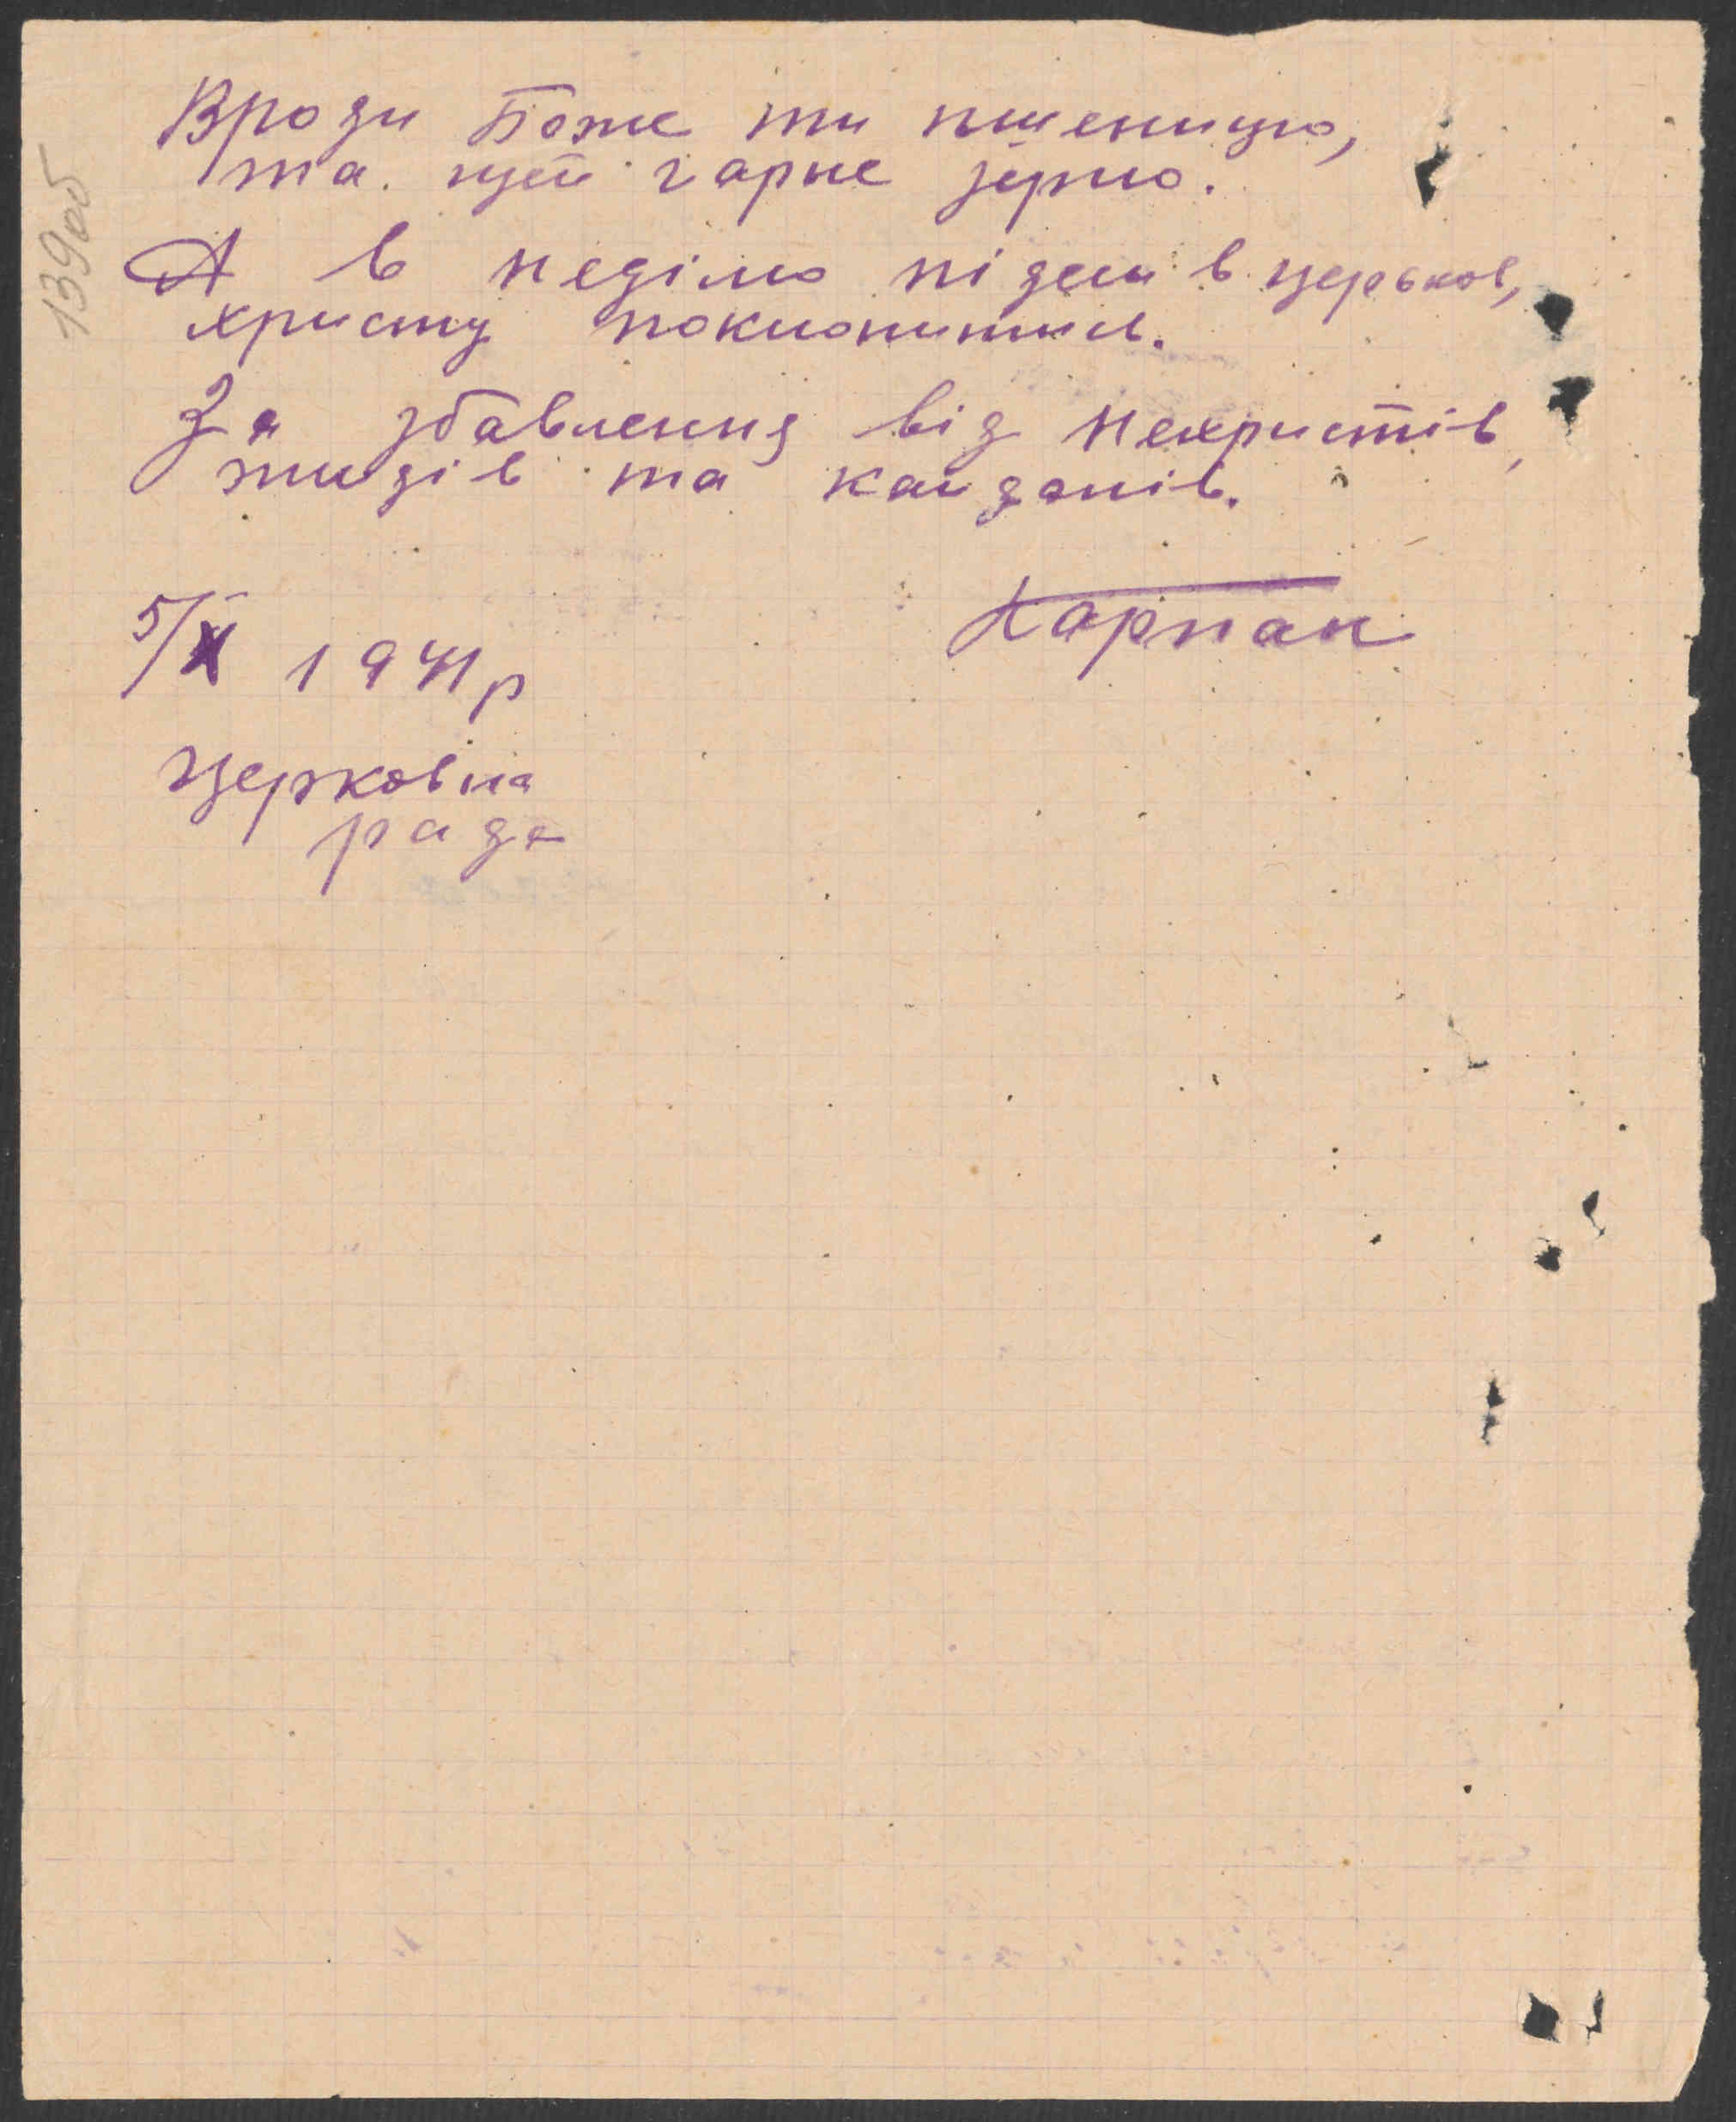 Вроди Боже ти пшеницю,
та гарне зерно.
А в неділю підем в церьков,
христу поклонитись.
За збавлення від нехристів,
жидів та кайданів.
Карпан
5/X 1941 р
Церковна
рада
139 об